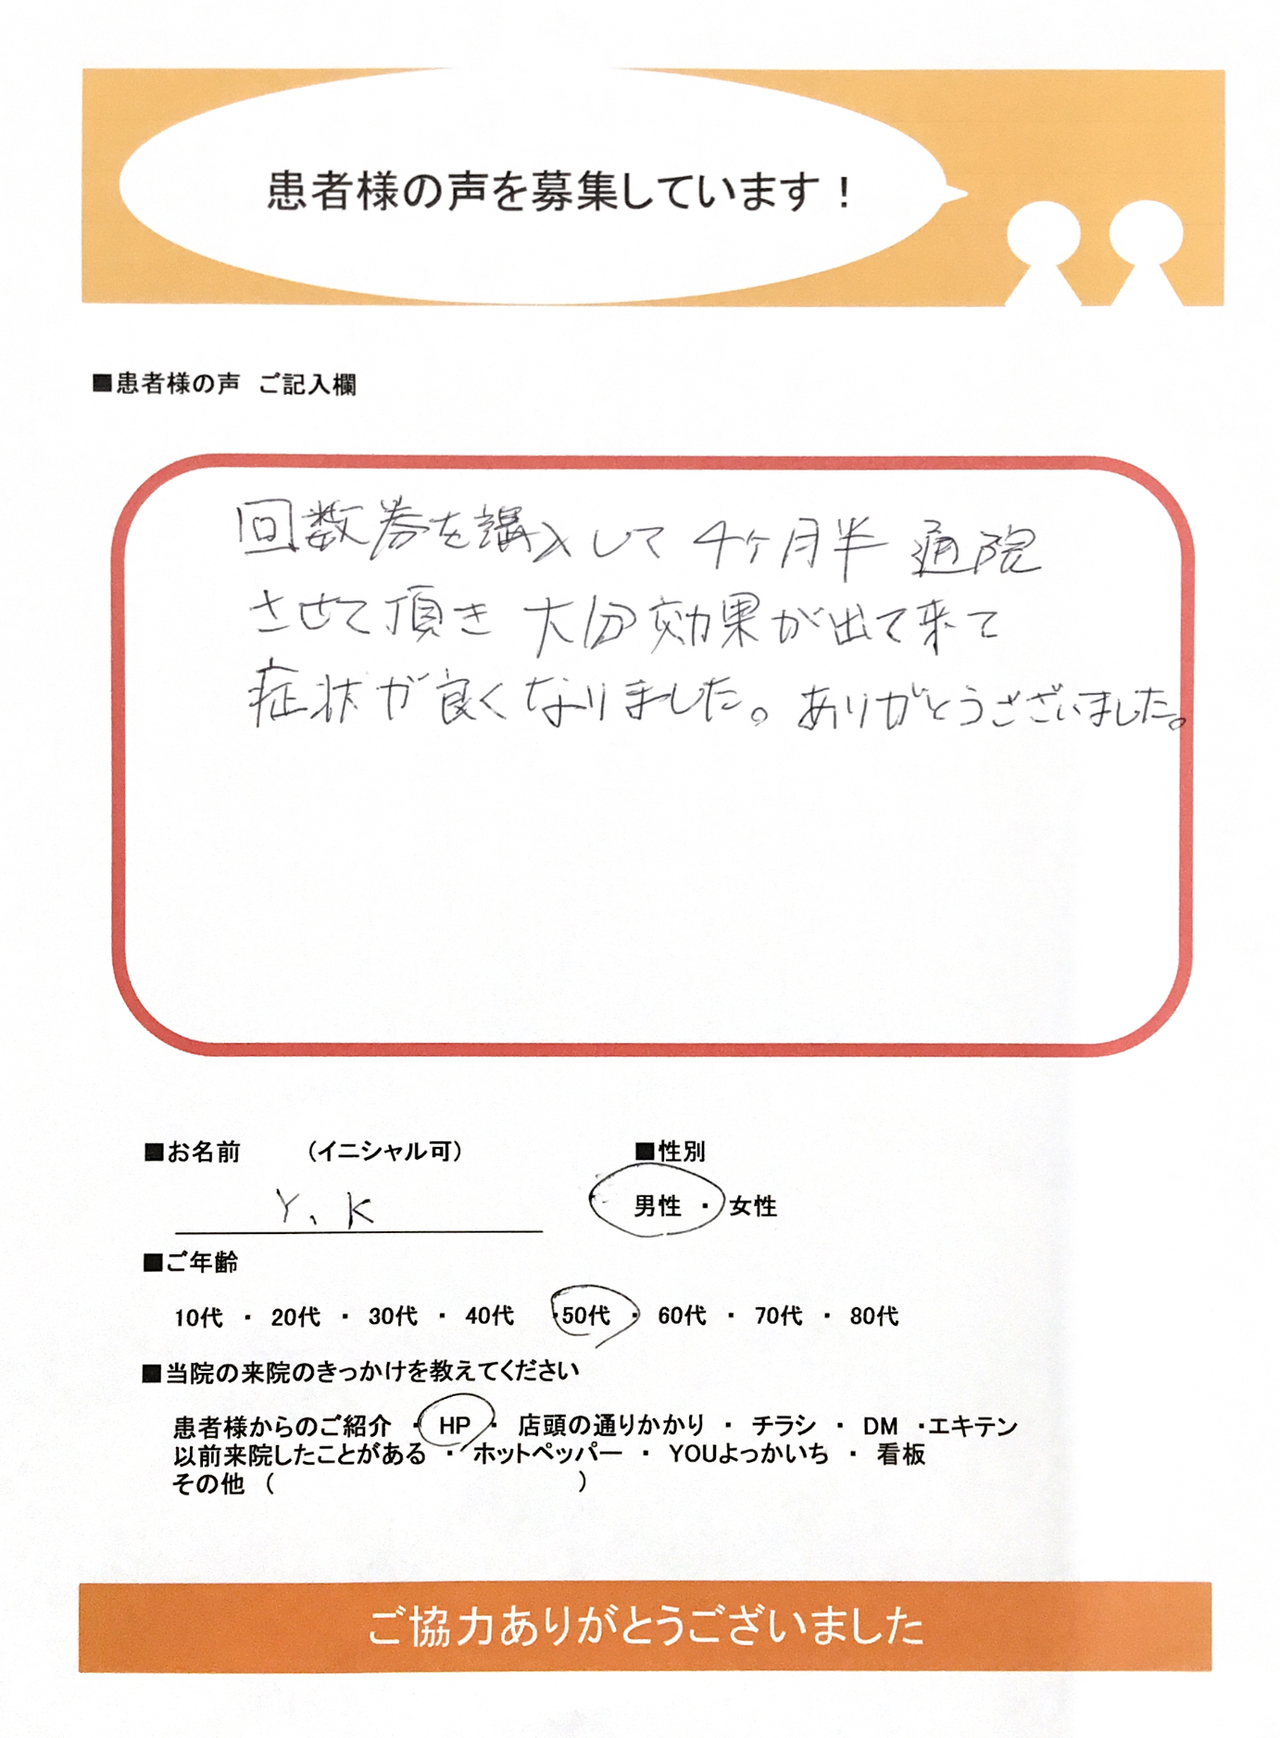 患者様の声を募集しています！
■患者様の声　ご記入欄
回数券を購入して 4ヶ月半 通院
させて頂き 大分効果が出て来て
症状が良くなりました。ありがとうございました。
■お名前　　（イニシャル可）　　■性別
Y、K　　男性 ・ 女性
■ご年齢
10代 ・ 20代 ・ 30代 ・ 40代 ・50代 ・ 60代 ・ 70代 ・ 80代
■当院の来院のきっかけを教えてください
患者様からのご紹介 ・ HP ・ 店頭の通りかかり ・ チラシ ・ DM ・エキテン
以前来院したことがある ・ ホットペッパー ・ YOUよっかいち ・ 看板
その他（　　　　　　　　　　）
ご協力ありがとうございました